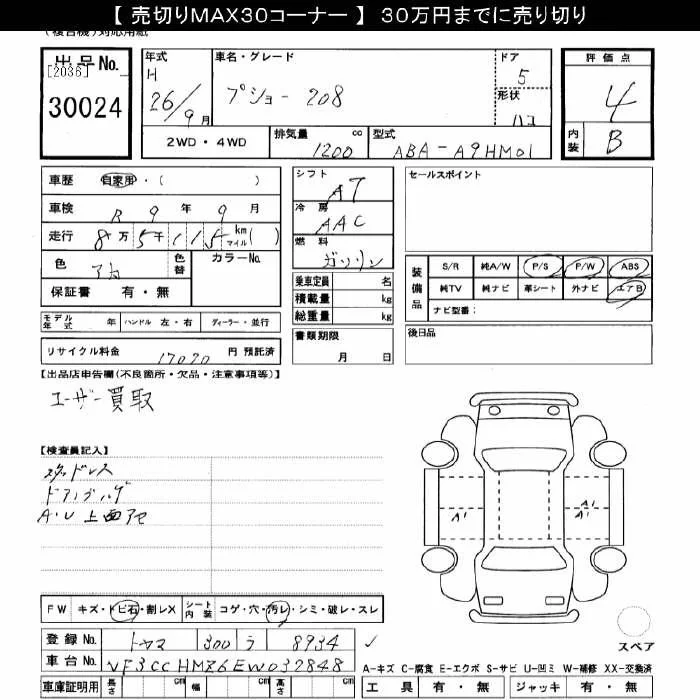 【 売切りMAX30コーナー 】 30万円までに売り切り
(複合機)対応用紙
出品No. [2036]
30024
年式 H 26/9月
車名・グレード プジョー 208
ドア 5
形状 ハコ
2WD・4WD
排気量 1200 cc
型式 ABA-A9HM01
評価点 4
内装 B
車歴 自家用・( )
車検 R 9 年 9 月
走行 8万 5千 115 km マイル( )
色 アカ 色替 カラーNo.
保証書 有・無
モデル年式 年 ハンドル 左・右 ディーラー・並行
リサイクル料金 17020 円 預託済
シフト AT
冷房 AAC
燃料 ガソリン
乗車定員 名
積載量 kg
総重量 kg
書類期限
月 日
セールスポイント
装備品 S/R 純A/W P/S P/W ABS
純TV 純ナビ 革シート 外ナビ エアB
ナビ型番:
後日品
【出品店申告欄(不良箇所・欠品・注意事項等)】
ユーザー買取
【検査員記入】
スタッドレス
A・U 上面アセ
A1 A1
A1
FW キズ・トビ石・割レX シート内装 コゲ・穴・汚レ・シミ・破レ・スレ
登録 No. トヤマ 300 ラ 8934
車台 No. VF3CCHMZ6EW032848
車庫証明用 長さ cm 幅 cm 高さ cm
スペア
A-キズ C-腐食 E-エクボ S-サビ U-凹ミ W-補修 XX-交換済
工具 有・無 ジャッキ 有・無